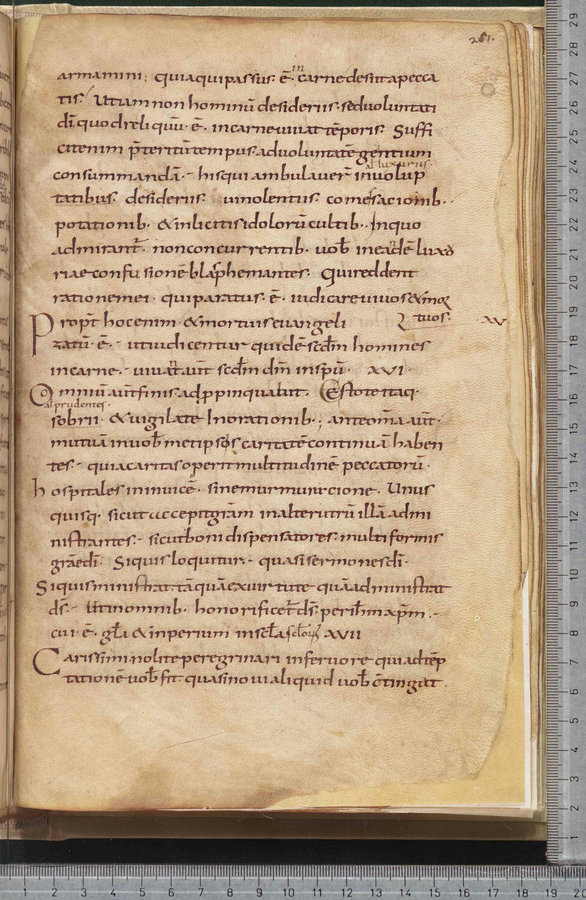 261.
armamini; quia qui passus. ē. in carne desiit a pecca
tis. Ut iam non hominū desideriis. sed voluntati
dī. quod reliquū. ē. in carne vivat tēporis. Suffi
cit enim p̄teritū tempus ad voluntatē gentium
al luxuriis.
consummandā. his qui ambulaver̄ in volup
tatibus. desideriis. vinolentiis. comesacionib.
potationib. & inlicitis idolorū cultib. In quo
admirant̄. non concurrentib. vob̄ in eadē luxu
riae confusionē blasphemantes. Qui reddent
rationem ei. qui paratus. ē. iudicare vivos & mor
tuos.
XV
Propt̄ hoc enim & mortuis evangeli
zatū. ē. ut iudicentur quidē scdm̄ homines
in carne. vivat̄ aut̄ scdm̄ dm̄ in spū. XVI.
Omniū aut̄ finis adppinquabit. Estote itaq.
al prudentes.
sobrii. & vigilate In orationib.; ante om̄a aut̄.
mutuā in vob̄metipsos caritatē continuā haben
tes. quia caritas operit multitudinē peccatorū.
hospitales in invicē. sine murmuracione. Unus
quisq. sicut accepit grām in alterutrū illā admi
nistrantes. sicut boni dispensatores. multiformis
grae dī. Si quis loquitur. quasi sermones dī.
Si quis ministrat. tāquā ex virtute quā administrat
ds. Ut in omnib. honorificet̄ ds̄. per ihm̄ xpm̄.
cui. ē. gl̄a & inperium in scl̄a sclor̄. XVII
Carissimi nolite peregrinari in fervore qui ad tēp
tationē vob̄ fit. quasi novi aliquid vob̄ c̄tingat.